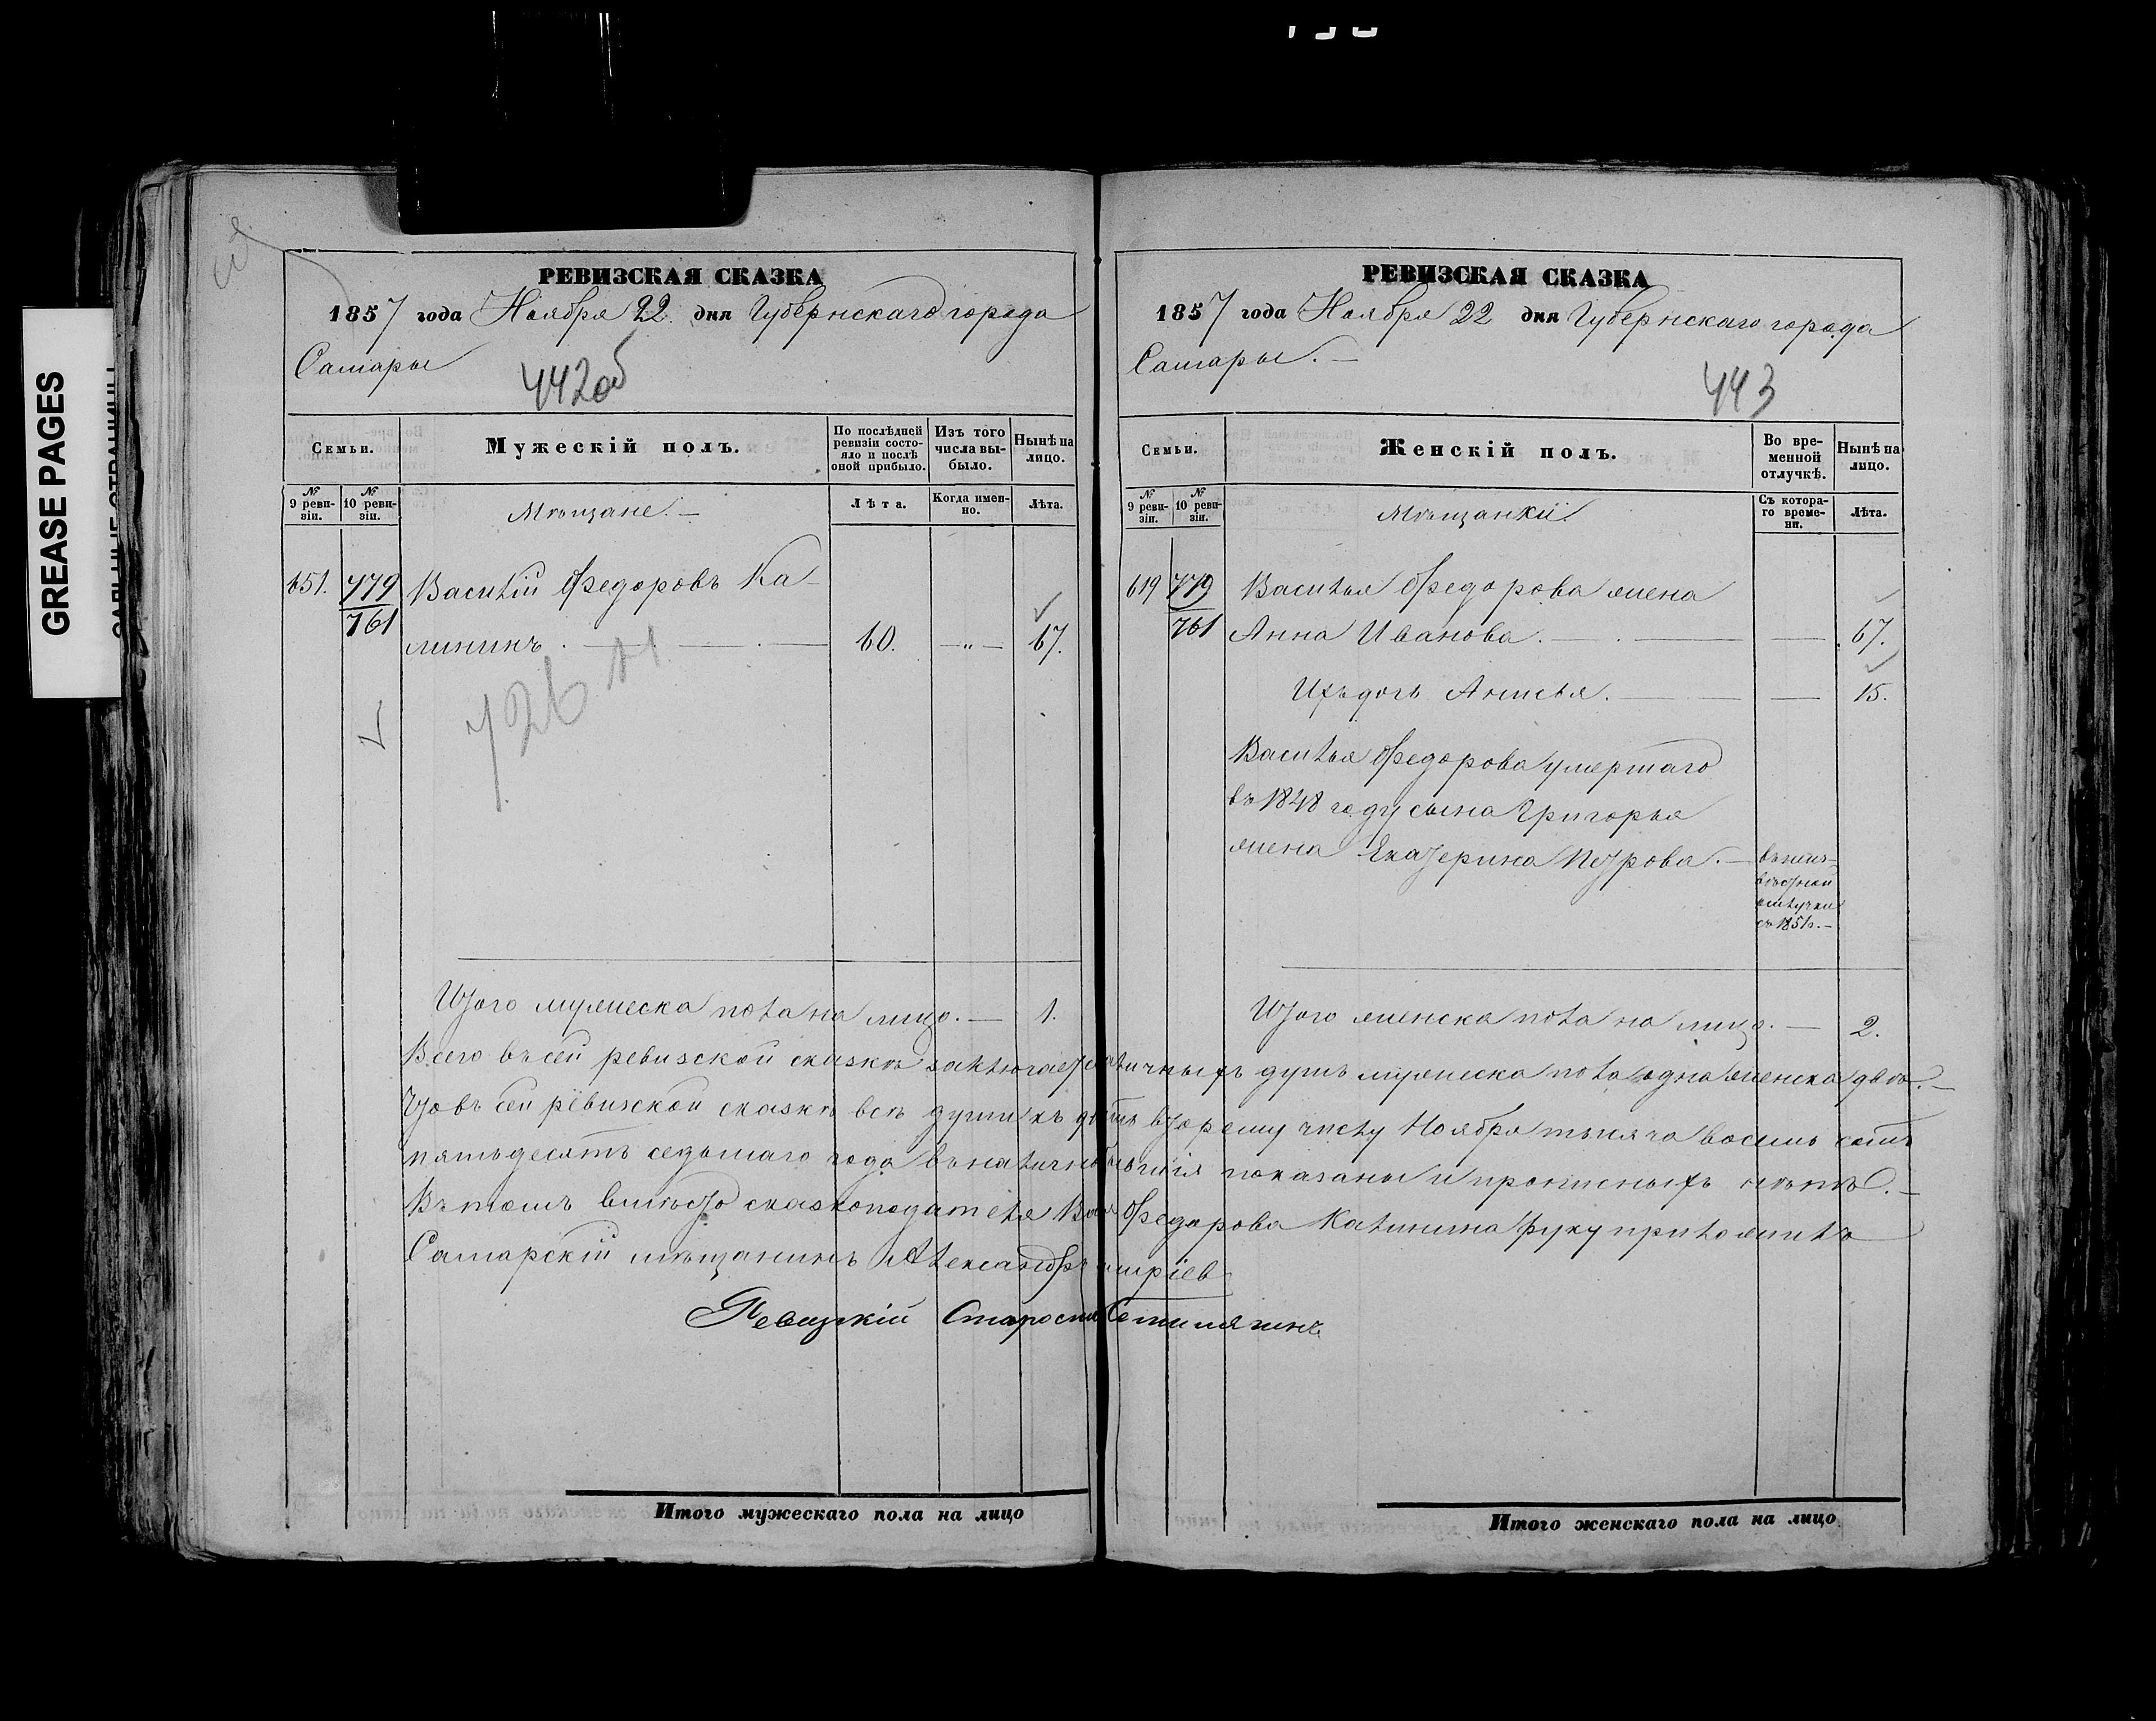 GREASE PAGES
РЕВИЗСКАЯ СКАЗКА
1857 года Ноября 22 дня Губернскаго города
Самары
442об
Семьи.
Мужескій полъ.
По послѣдней ревизіи состояло и послѣ оной прибыло.
Изъ того числа выбыло.
Нынѣ на лицо.
№ 9 ревизіи.
№ 10 ревизіи.
Мѣщане. —
Лѣта.
Когда именно.
Лѣта.
651. 779 Василій Федоровъ Ка-
761 лининъ. 60. —"— 67.
726
Итого мужеска пола на лицо. — 1.
РЕВИЗСКАЯ СКАЗКА
1857 года Ноября 22 дня Губернскаго города
Самары. —
443
Семьи.
Женскій полъ.
Во временной отлучкѣ.
Нынѣ на лицо.
№ 9 ревизіи.
№ 10 ревизіи.
Мѣщанки.
Съ котораго времени.
Лѣта.
619 779 Василья Федорова жена
761 Анна Иванова. — 67.
Ихъ дочь Анисья. — 15.
Василья Федорова умершаго
въ 1848 году сына Григорья
жена Екатерина Петрова. —
въ неиз-
вѣстной
отлучки
съ 1851 г. —
Итого женска пола на лицо. — 2.
Всего въ сей ревизской сказкѣ заключается наличныхъ душъ мужеска пола одна женска двѣ. —
Что въ сей ревизской сказкѣ всѣ души къ второму числу Ноября тысяча восемь сотъ
пятьдесятъ седьмаго года показаны и прописныхъ нѣтъ. —
Въ томъ вмѣсто сказкоподателя Федорова Калинина руку приложилъ
Самарскій мѣщанинъ Александръ
Ревизкій Староста
Итого мужескаго пола на лицо
Итого женскаго пола на лицо